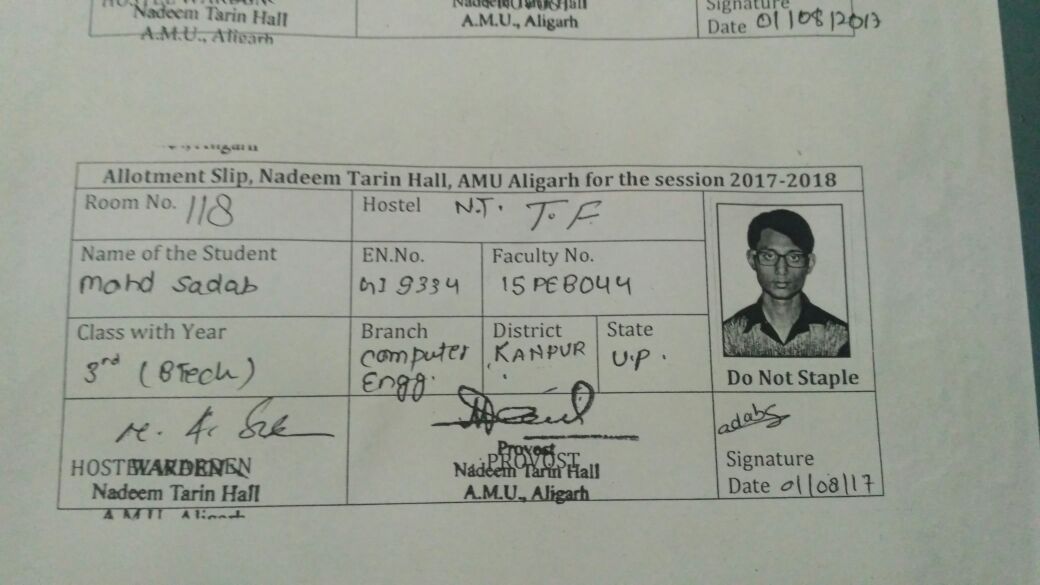 Nadeem Tarin Hall
A.M.U., Aligarh
Hall
A.M.U., Aligarh
Signature
Date 01/08/2013
Allotment Slip, Nadeem Tarin Hall, AMU Aligarh for the session 2017-2018
Room No. 118
Hostel N.T. T. F
Name of the Student
Mohd Sadab
EN.No.
GI 9334
Faculty No.
15PEB044
Class with Year
3rd (BTech)
Branch
Computer
Engg.
District
KANPUR
State
U.P.
Do Not Staple
HOSTEL WARDEN
WARDEN
Nadeem Tarin Hall
A.M.U., Aligarh
Provost
PROVOST
Nadeem Tarin Hall
A.M.U., Aligarh
adabs
Signature
Date 01/08/17